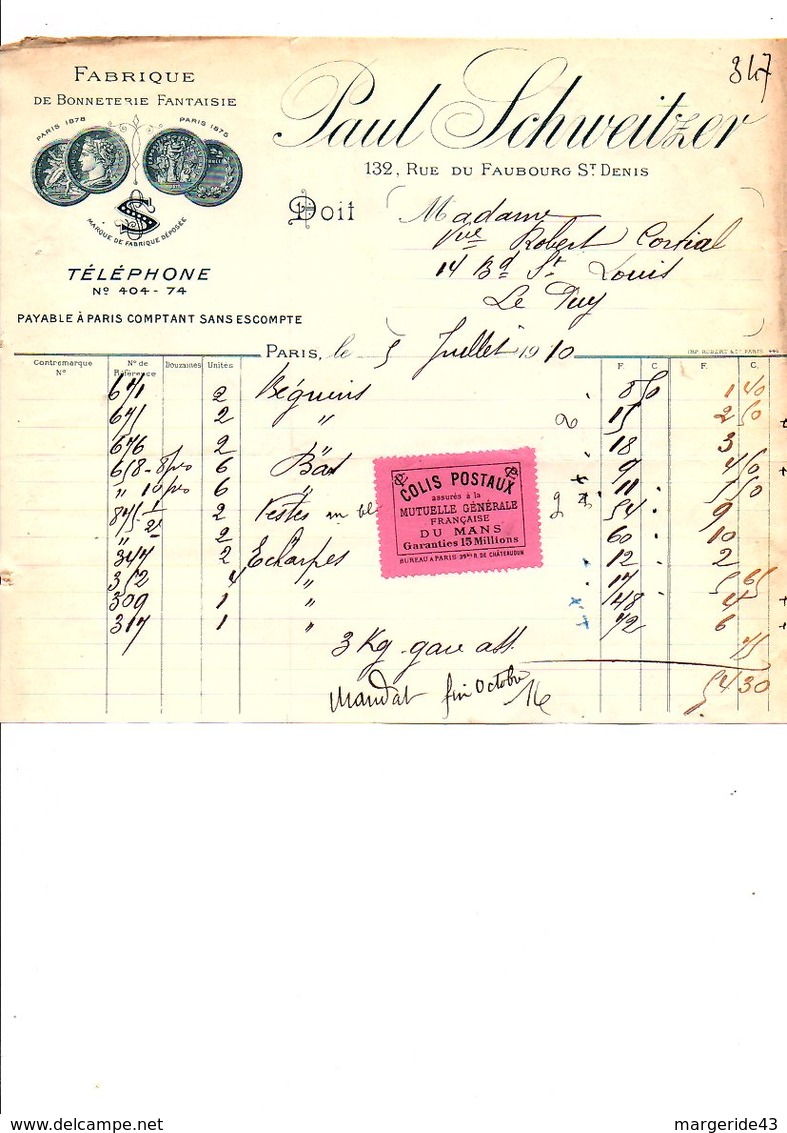 347
FABRIQUE
DE BONNETERIE FANTAISIE
PARIS 1878 PARIS 1875
MARQUE DE FABRIQUE DÉPOSÉE
TÉLÉPHONE
Nº 404-74
PAYABLE À PARIS COMPTANT SANS ESCOMPTE
Paul Schweitzer
132, RUE DU FAUBOURG ST DENIS
Doit
Madame
Vve Robert Cortial
14 Bd St Louis
Le Puy
PARIS, le 5 Juillet 1910
IMP. ROBERT & Cie PARIS
Contremarque Nº Nº de Référence Douzaines Unités F. C. F. C.
671 2 Béguins 8 50 1 40
675 2 " 15 2 50
676 2 " 18 3
658 - 8 6 Bas 9 4 50
" 10 6 " 11 5 50
875 1 2 Vestes 54 9
" 2 2 60 10
347 2 Echarpes 12 2
352 4 " 17 5 65
309 1 " 48 4
317 1 " 72 6
3 Kg gare 75
54 30
Mandat fin Octobre
16
COLIS POSTAUX
assurés à la
MUTUELLE GÉNÉRALE
FRANÇAISE
DU MANS
Garanties 15 Millions
BUREAU A PARIS 39bis R. DE CHÂTEAUDUN
www.delcampe.net
margeride43